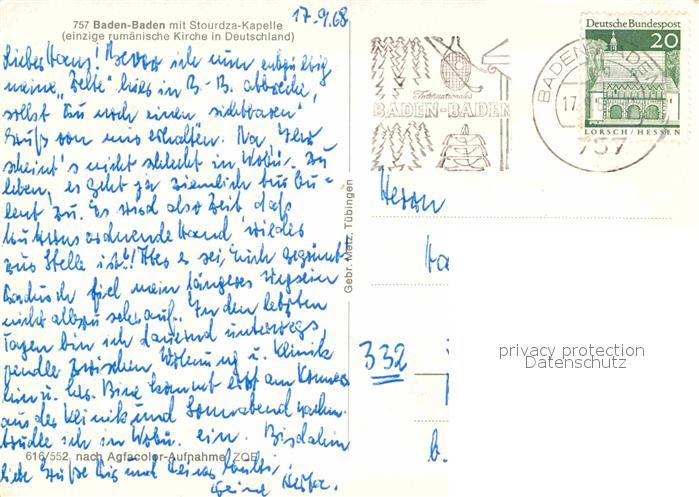 757 Baden-Baden mit Stourdza-Kapelle
(einzige rumänische Kirche in Deutschland)
17.9.68
Lieber Hans! Bevor ich nun endgültig
meine "Zelte" hier in B.-B. abbreche,
sollst Du noch einen "sichtbaren"
Gruß von mir erhalten. Na, Ihr
scheint's nicht schlecht in Wobu. zu
leben, es geht ja ziemlich turbu-
lent zu. Es wird also Zeit daß
ordnende Hand wieder
zur Stelle ist!! Aber es sei, Euch gegönnt
Dadurch fiel mein längeres Wegsein
nicht allzu sehr auf. In den letzten
Tagen bin ich dauernd unterwegs,
pendle zwischen Wohnung u. Klinik
hin u. her. kommt erst am
aus der Klinik und Sonnabend nachm.
trudle ich in Wobu. ein. Bis dahin
liebe Grüße Dir und
Deine
616/552 nach Agfacolor-Aufnahme ZOB
Gebr. Metz, Tübingen
Internationales
BADEN-BADEN
BADEN-BADEN
17.
757
Deutsche Bundespost
20
LORSCH/HESSEN
Herrn
332
b.
privacy protection
Datenschutz